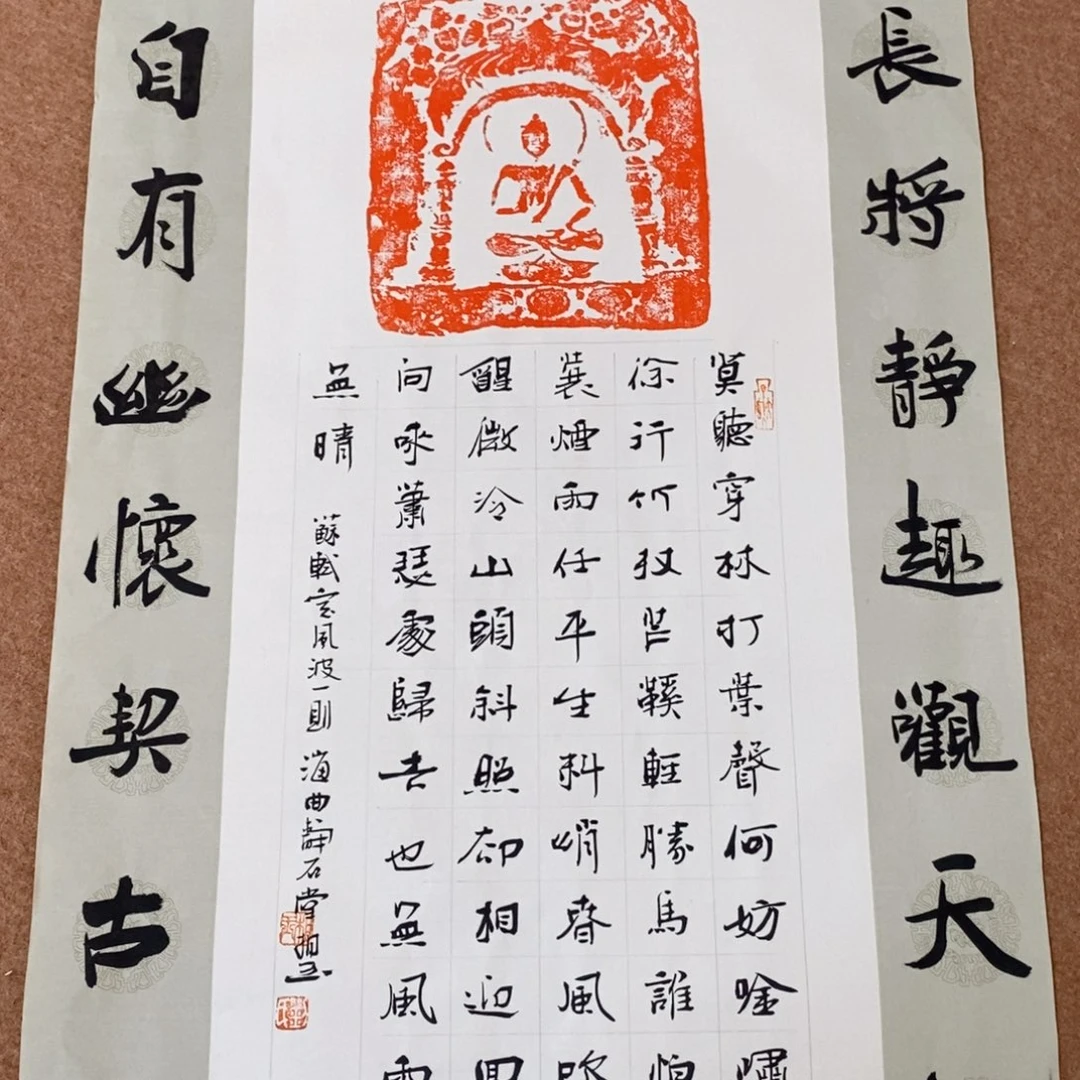 長將靜趣觀天
莫聽穿林打葉聲何妨唫嘯
徐行竹杖芒鞵輕勝馬誰怕
蓑煙雨任平生料峭春風吹
醒微冷山頭斜照却相迎回
向來蕭瑟處歸去也無風雨
無晴
蘇軾定風波一則 海曲靜石堂
自有幽懷契古